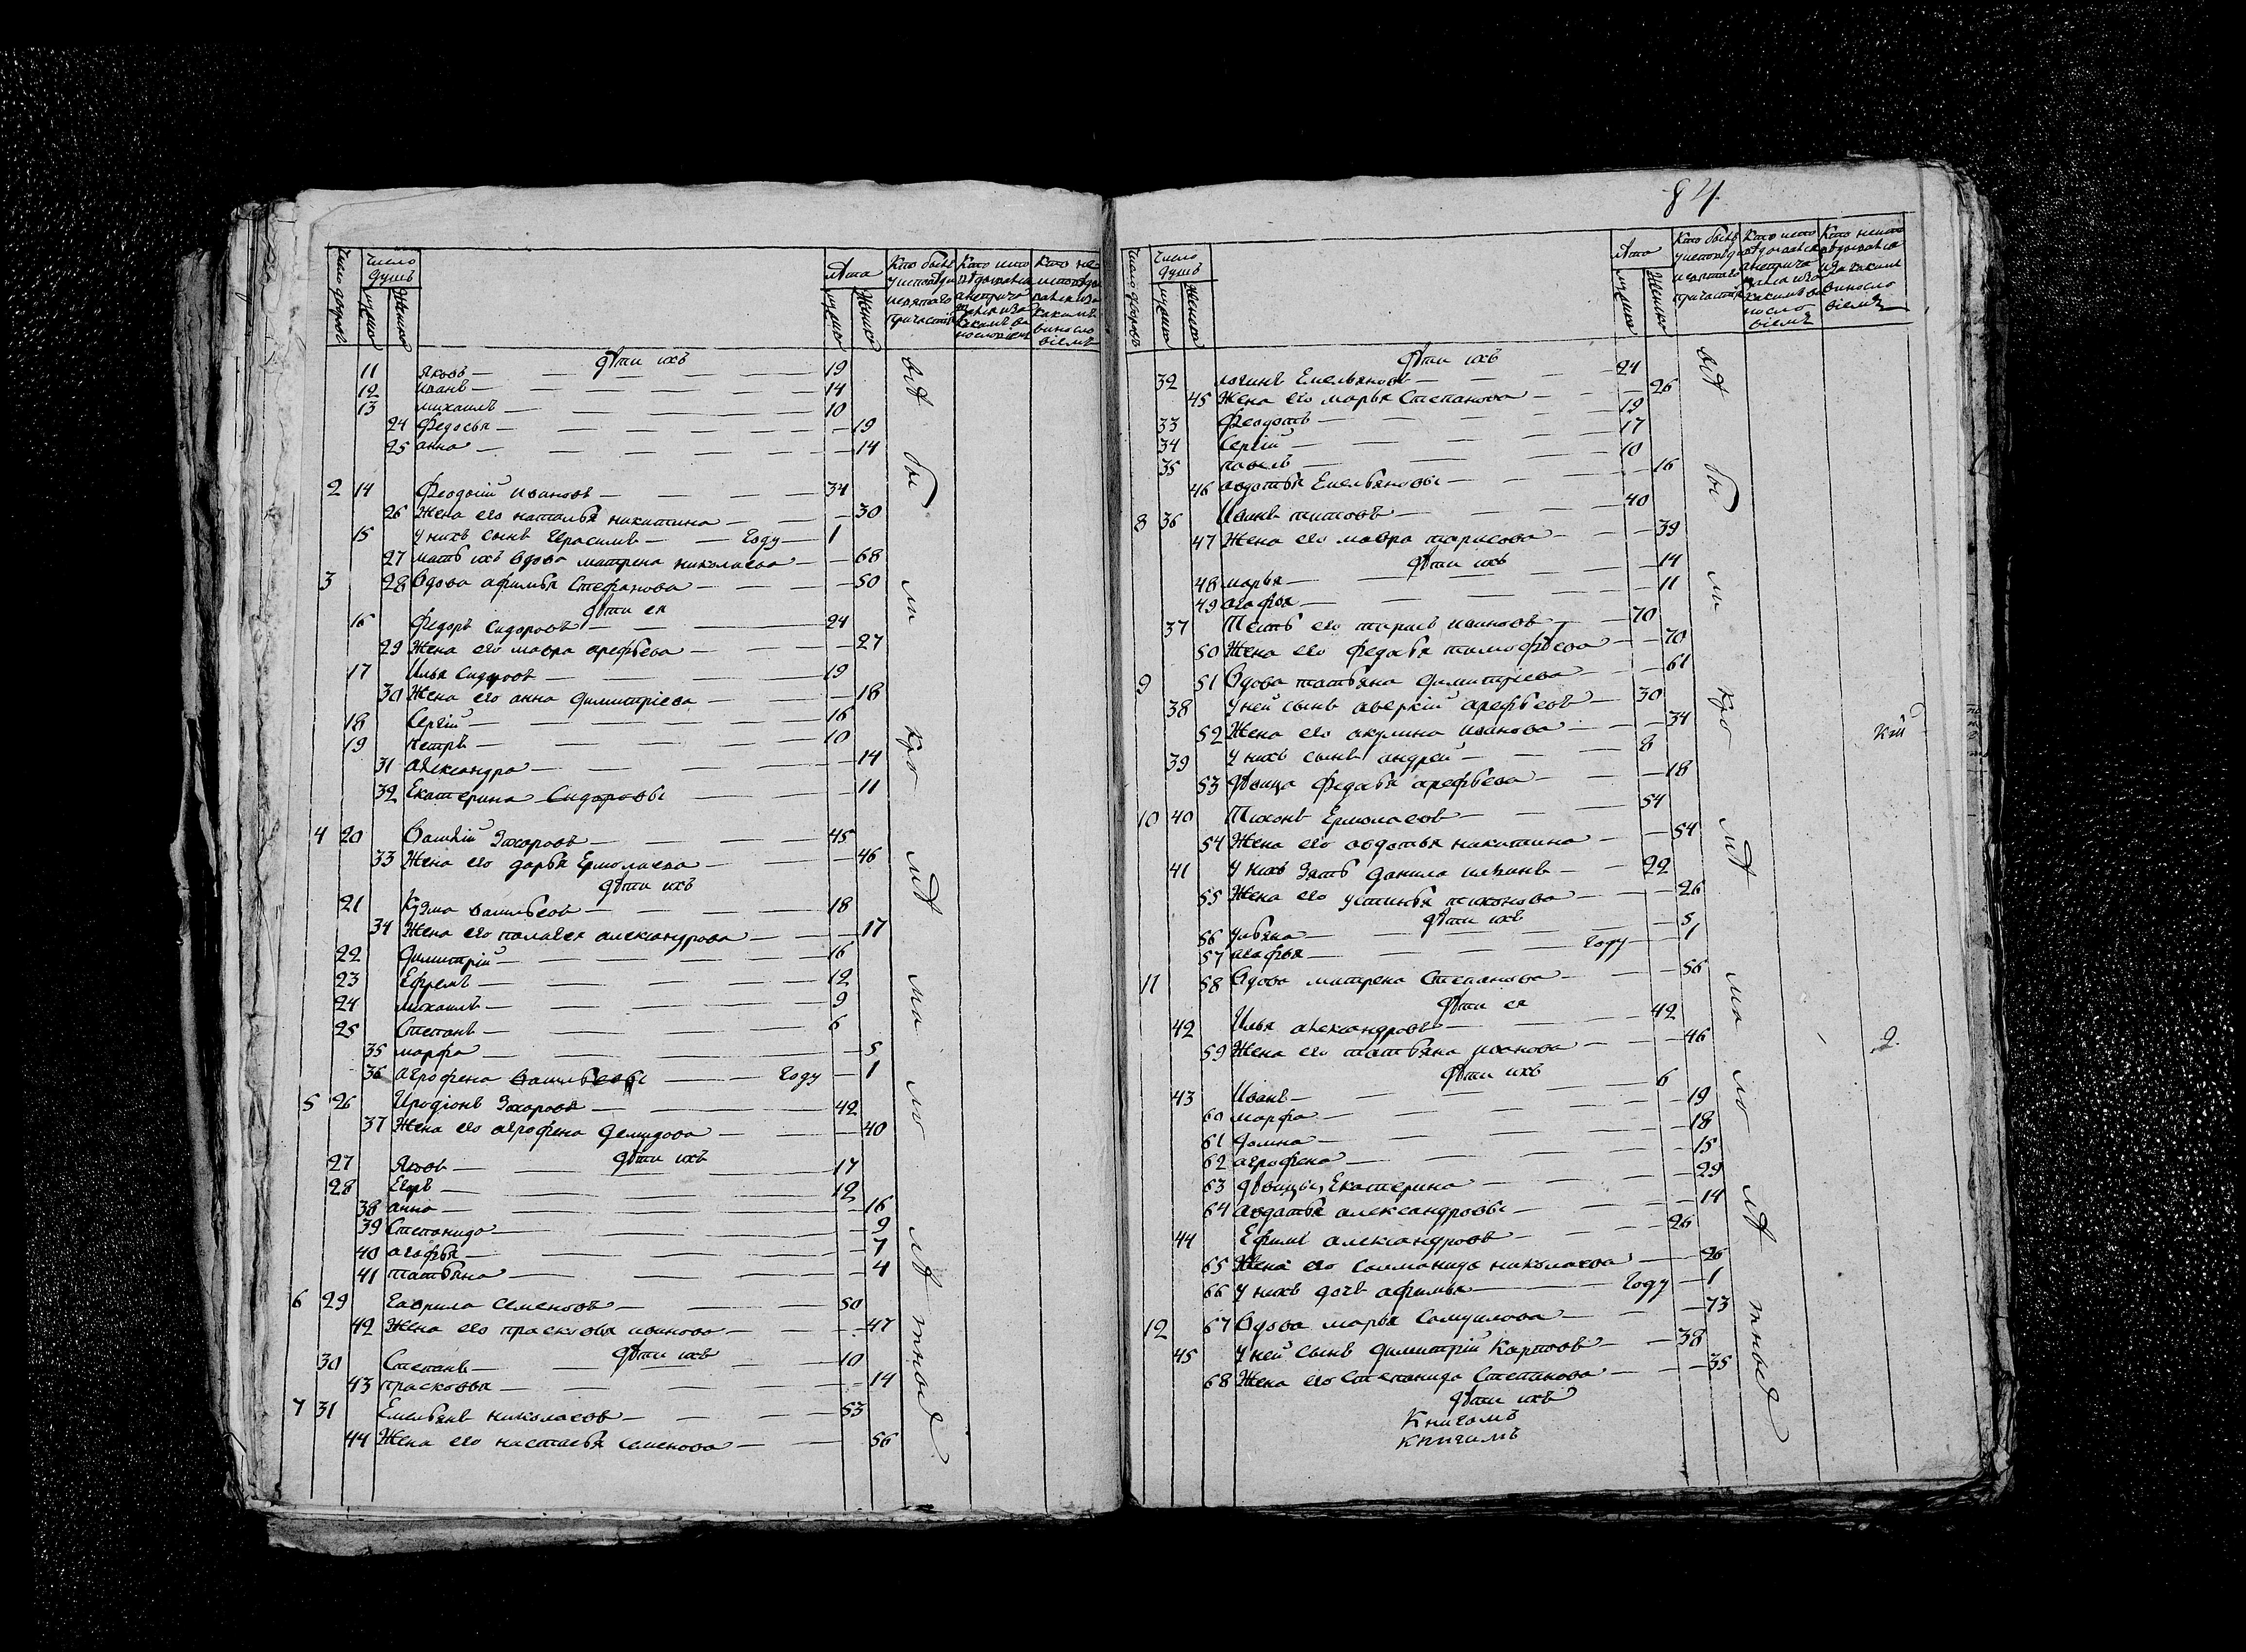 Число дворовъ
Число душъ
мужеска
Женска
лѣта
мужеска
Женска
Кто былъ у исповѣди и святаго причастія
Кто исповѣдывался а непріча
Кто не исповѣды
дѣти ихъ
11 яковъ — 19
12 иванъ — 14
13 михаилъ — 10
24 Федосья — 19
25 анна — 14
2 14 Феодосій ивановъ — 34
26 Жена его наталья никитина — 30
15 у нихъ сынъ Герасимъ — Году — 1
27 мать ихъ вдова матрена николаева — 68
3 28 Вдова афимья Стефанова — 50
дѣти ея
16 Федоръ Сидоровъ — 24
29 Жена его мавра арефьева — 27
17 Илья Сидоровъ — 19
30 Жена его анна димитріева — 18
18 Сергій — 16
19 петръ — 10
31 александра — 14
32 Екатерина Сидоровы — 11
4 20 Василій Захаровъ — 45
33 Жена его дарья Ермолаева — 46
дѣти ихъ
21 Кузма васильевъ — 18
34 Жена его палагея александрова — 17
22 Димитрій — 16
23 Ефремъ — 12
24 михаилъ — 9
25 Степанъ — 6
35 марфа — 5
36 агрофена васильевы — Году — 1
5 26 Иродіонъ Захаровъ — 42
37 Жена его агрофена демидова — 40
дѣти ихъ
27 яковъ — 17
28 Егоръ — 12
38 анна — 16
39 Степанида — 9
40 агафья — 7
41 татьяна — 4
6 29 гаврила семеновъ — 50
42 Жена его прасковья иванова — 47
дѣти ихъ
30 Степанъ — 10
43 прасковья — 14
7 31 Емельянъ николаевъ — 53
44 Жена его настасья семенова — 56
84
Число дворовъ
Число душъ
мужеска
Женска
лѣта
мужеска
Женска
Кто былъ у исповѣди и святаго причастія
дѣти ихъ
32 логинъ Емельяновъ — 24
45 Жена его марья Степанова — 26
33 Феодотъ — 19
34 Сергій — 17
35 павелъ — 10
46 авдотья Емельяновы — 16
8 36 Иванъ титовъ — 40
47 Жена его мавра тарасова — 39
дѣти ихъ
48 марья — 14
49 агафья — 11
37 Тесть его тарасъ ивановъ — 70
50 Жена его федосья тимофѣева — 70
9 51 Вдова татьяна димитріева — 61
38 у ней сынъ аверкій арефьевъ — 30
52 Жена его акулина иванова — 34
39 у нихъ сынъ андрей — 8
53 дѣвица федосья арефьева — 18
10 40 Тихонъ Ермолаевъ — 54
54 Жена его авдотья никитина — 54
41 у нихъ зять данила ильинъ — 22
55 Жена его устинья тихонова — 26
дѣти ихъ
56 ульяна — 5
57 агафья — Году — 1
11 58 Вдова матрена Степанова — 56
дѣти ея
42 Илья александровъ — 42
59 Жена его татьяна иванова — 46
дѣти ихъ
43 Иванъ — 6
60 марфа — 19
61 домна — 18
62 агрофена — 15
63 дѣвицы, Екатерина — 29
64 авдотья александровы — 14
44 Ефимъ александровъ — 26
65 Жена его саломанида николаева — 26
66 у нихъ дочь афимья — Году — 1
12 67 Вдова марья Самуилова — 73
45 у ней сынъ димитрій Карповъ — 38
68 Жена его Степанида Степанова — 35
дѣти ихъ
Книгамъ
книгамъ
2.